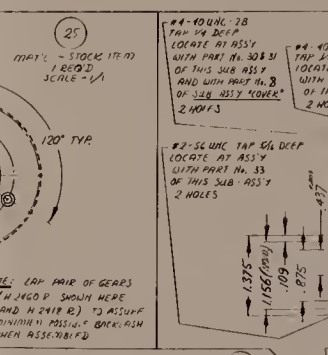 25
MAT'L - STOCK ITEM
1 REQ'D
SCALE - 1/1
120° TYP.
NOTE: LAP PAIR OF GEARS
(H 2460 P SHOWN HERE
AND H 2418 R) TO ASSURE
MINIMUM POSSIBLE BACKLASH
WHEN ASSEMBLED
#4-40 UNC-2B
TAP 1/4 DEEP
LOCATE AT ASS'Y
WITH PART No. 30 & 31
OF THIS SUB ASS'Y
AND WITH PART No. 8
OF SUB ASS'Y "COVER"
2 HOLES
#2-56 UNC TAP 5/16 DEEP
LOCATE AT ASS'Y
WITH PART No. 33
OF THIS SUB-ASS'Y
2 HOLES
#4-40
TAP
LOCATE
WITH
OF TH
2 HO
1.375
1.156
.109
.875
.437